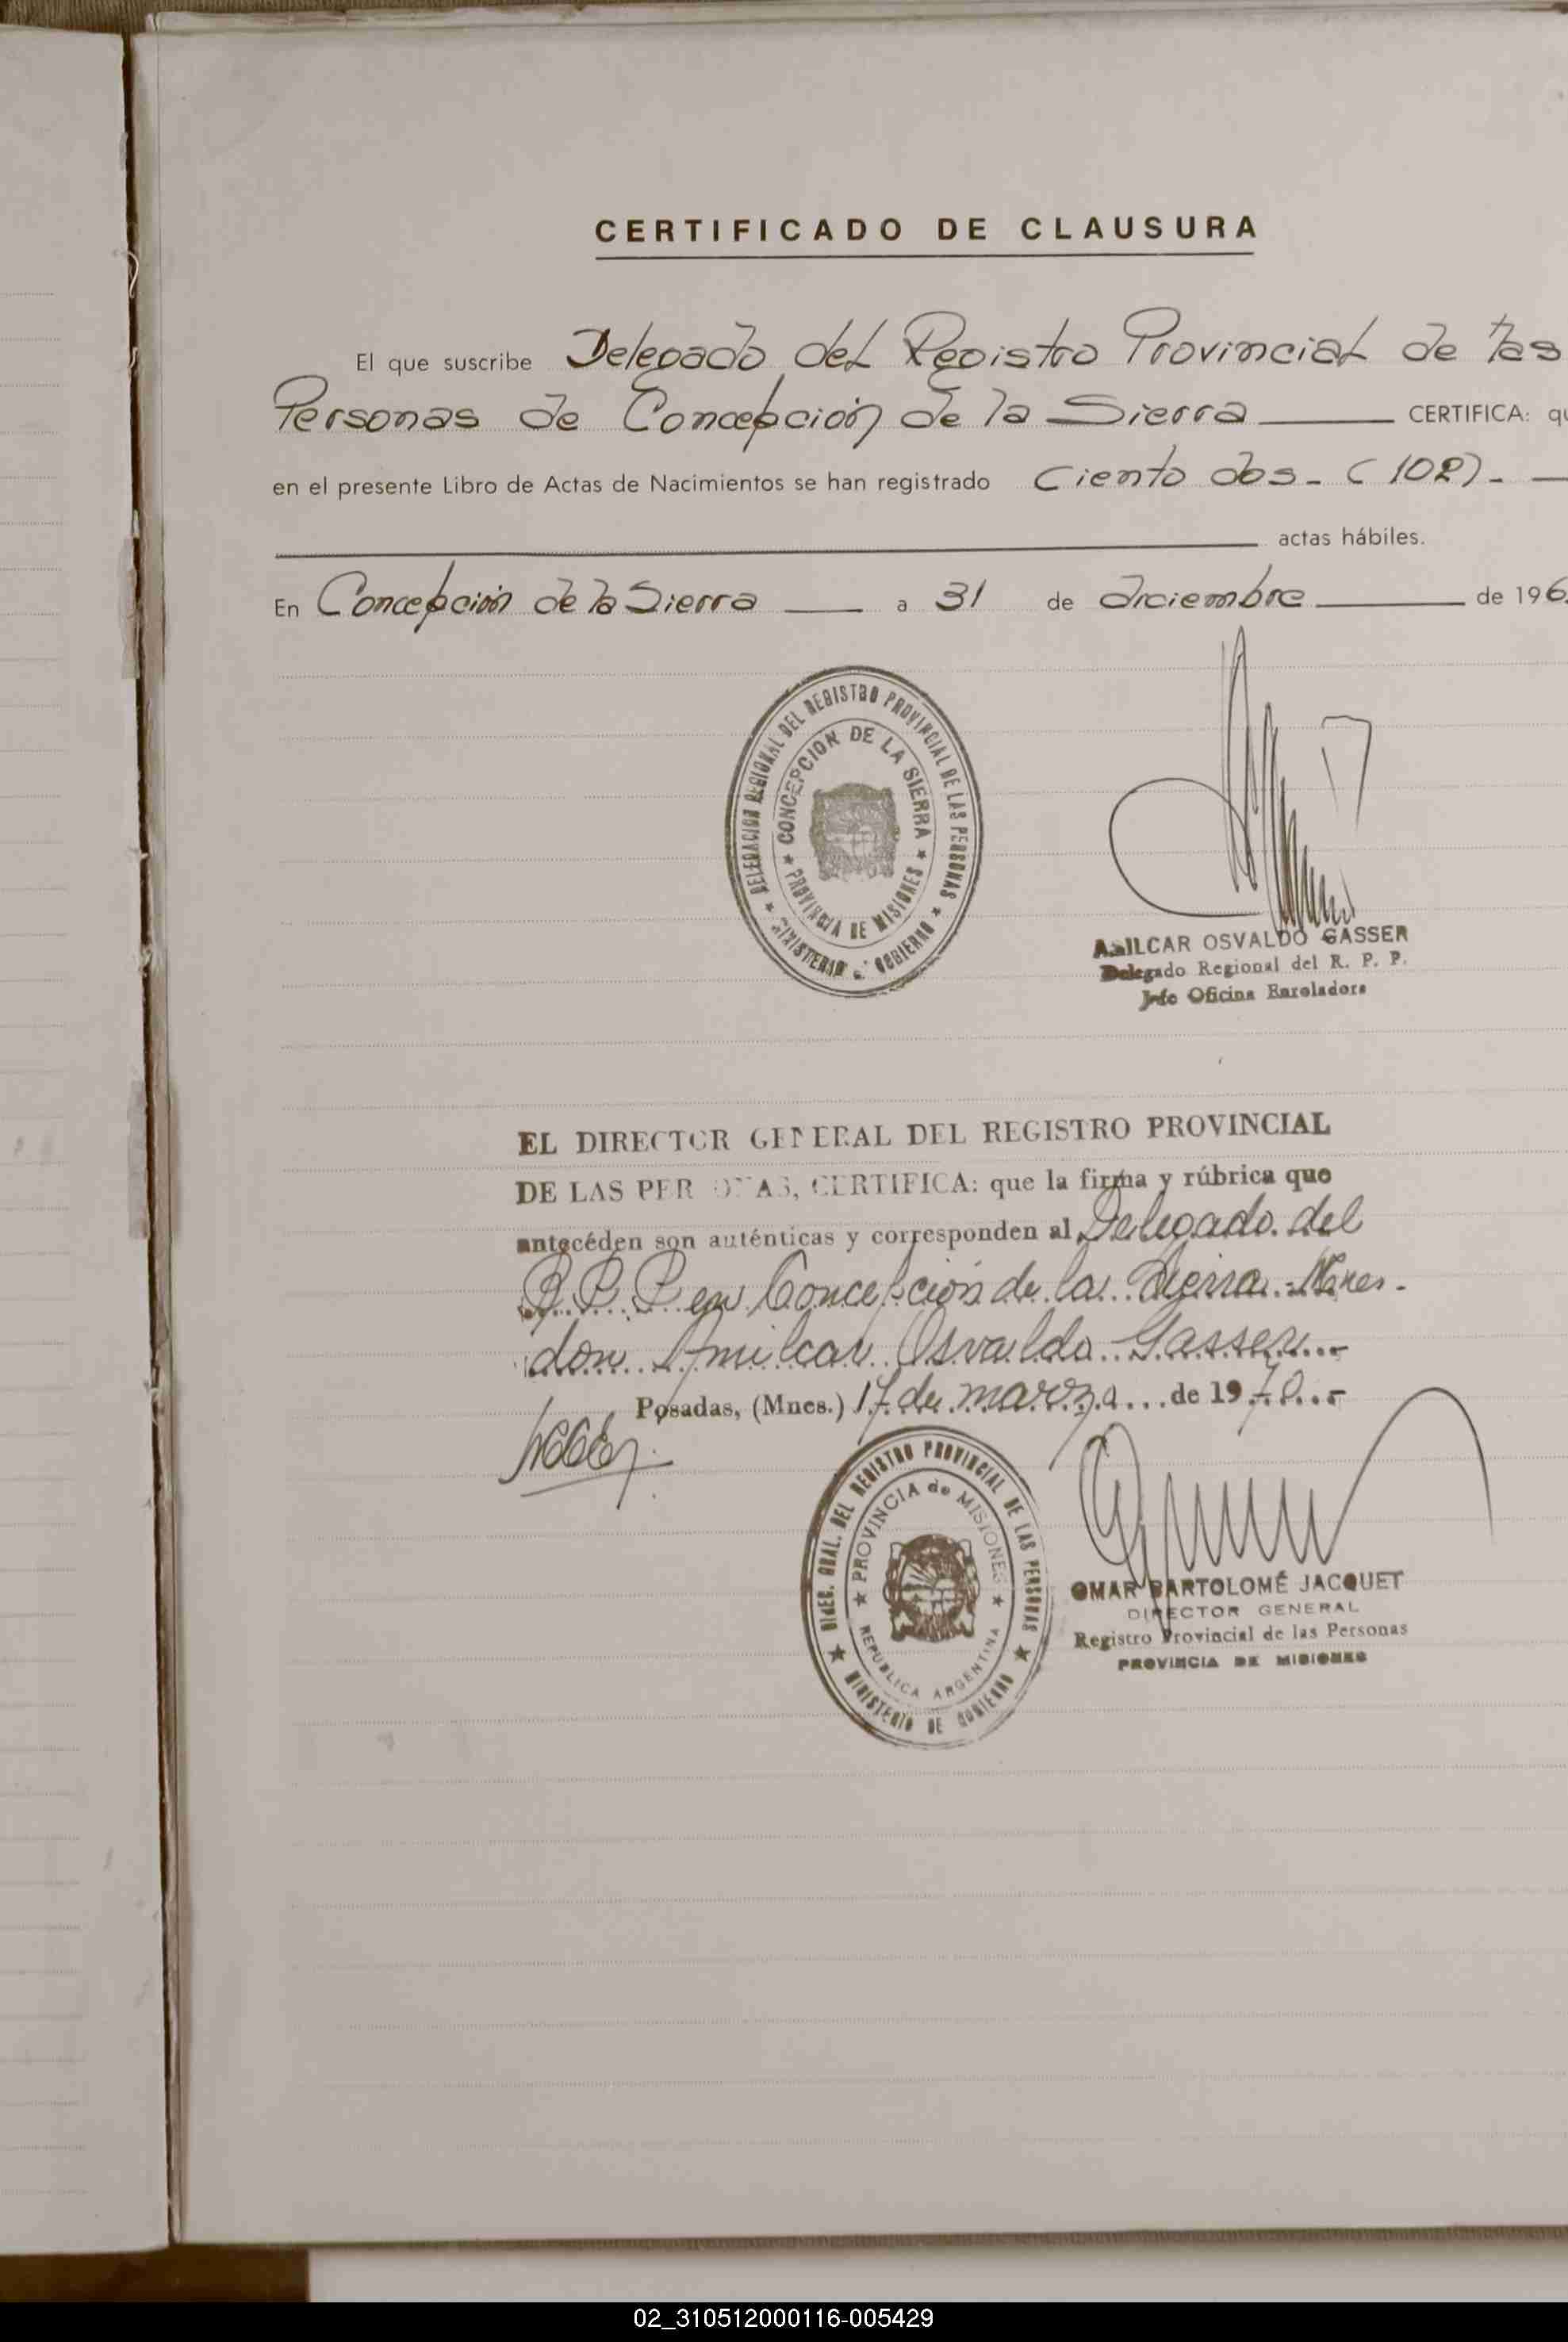 CERTIFICADO DE CLAUSURA
El que suscribe Delegado del Registro Provincial de las
Personas de Concepción de la Sierra CERTIFICA: qu
en el presente Libro de Actas de Nacimientos se han registrado Ciento dos - (102) -
actas hábiles.
En Concepción de la Sierra a 31 de diciembre de 196
DELEGACION REGIONAL DEL REGISTRO PROVINCIAL DE LAS PERSONAS
CONCEPCION DE LA SIERRA
PROVINCIA DE MISIONES
MINISTERIO GOBIERNO
AMILCAR OSVALDO GASSER
Delegado Regional del R. P. P.
Jefe Oficina Enroladora
EL DIRECTOR GENERAL DEL REGISTRO PROVINCIAL
DE LAS PERSONAS, CERTIFICA: que la firma y rúbrica que
antecéden son auténticas y corresponden al Delegado del
R.P.P. en Concepción de la Sierra - Mnes.
don Amilcar Osvaldo Gasser
Posadas, (Mnes.) 17 de marzo de 1970
DIREC. GRAL. DEL REGISTRO PROVINCIAL DE LAS PERSONAS
PROVINCIA de MISIONES
REPUBLICA ARGENTINA
MINISTERIO DE GOBIERNO
OMAR BARTOLOMÉ JACQUET
DIRECTOR GENERAL
Registro Provincial de las Personas
PROVINCIA DE MISIONES
02_310512000116-005429